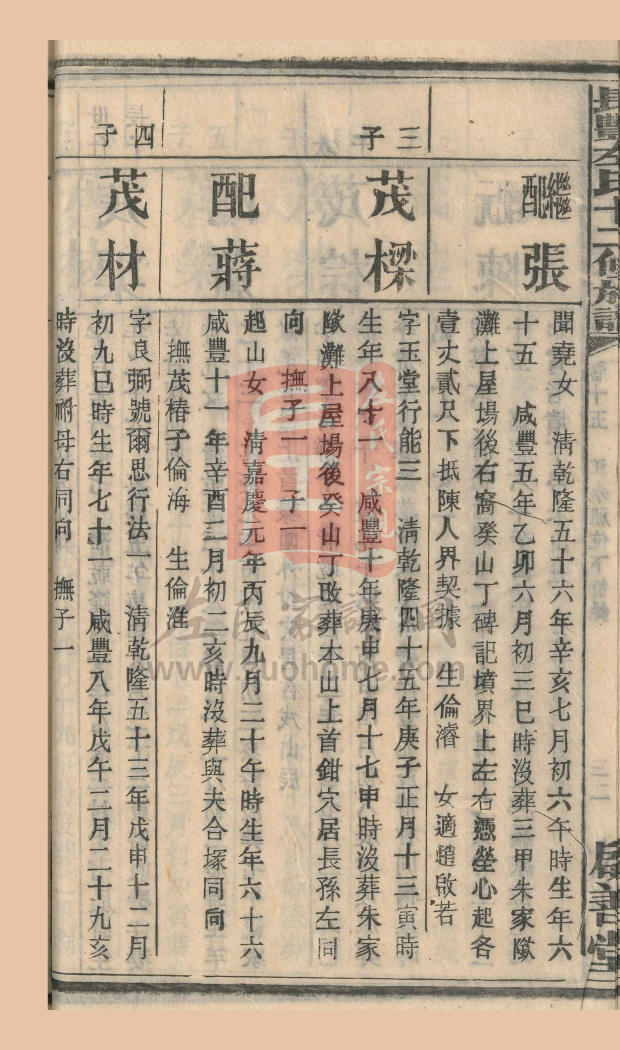 長豐左氏十二修族譜
繼配張
聞堯女 清乾隆五十六年辛亥七月初六午時生年六
十五 咸豐五年乙卯六月初三巳時沒葬三甲朱家
灘上屋場後右窩癸山丁碑記墳界上左右憑塋心起各
壹丈貳尺下抵陳人界契據 生倫濬 女適趙啟若
三子
茂樑
字玉堂行能三 清乾隆四十五年庚子正月十三寅時
生年八十一 咸豐十年庚申七月十七申時沒葬朱家
灘上屋場後癸山丁改葬本山上首鉗穴居長孫左同
向 撫子一 子一
配蔣
起山女 清嘉慶元年丙辰九月二十午時生年六十六
咸豐十一年辛酉二月初二亥時沒葬與夫合塚同向
撫茂椿子倫海 生倫淮
四子
茂材
字良弼號爾思行法一 清乾隆五十三年戊申十二月
初九巳時生年七十一 咸豐八年戊午二月二十九亥
時沒葬祔母右同向 撫子一
三二
啟善堂
左氏宗親
左氏家譜網
www.zuohome.com